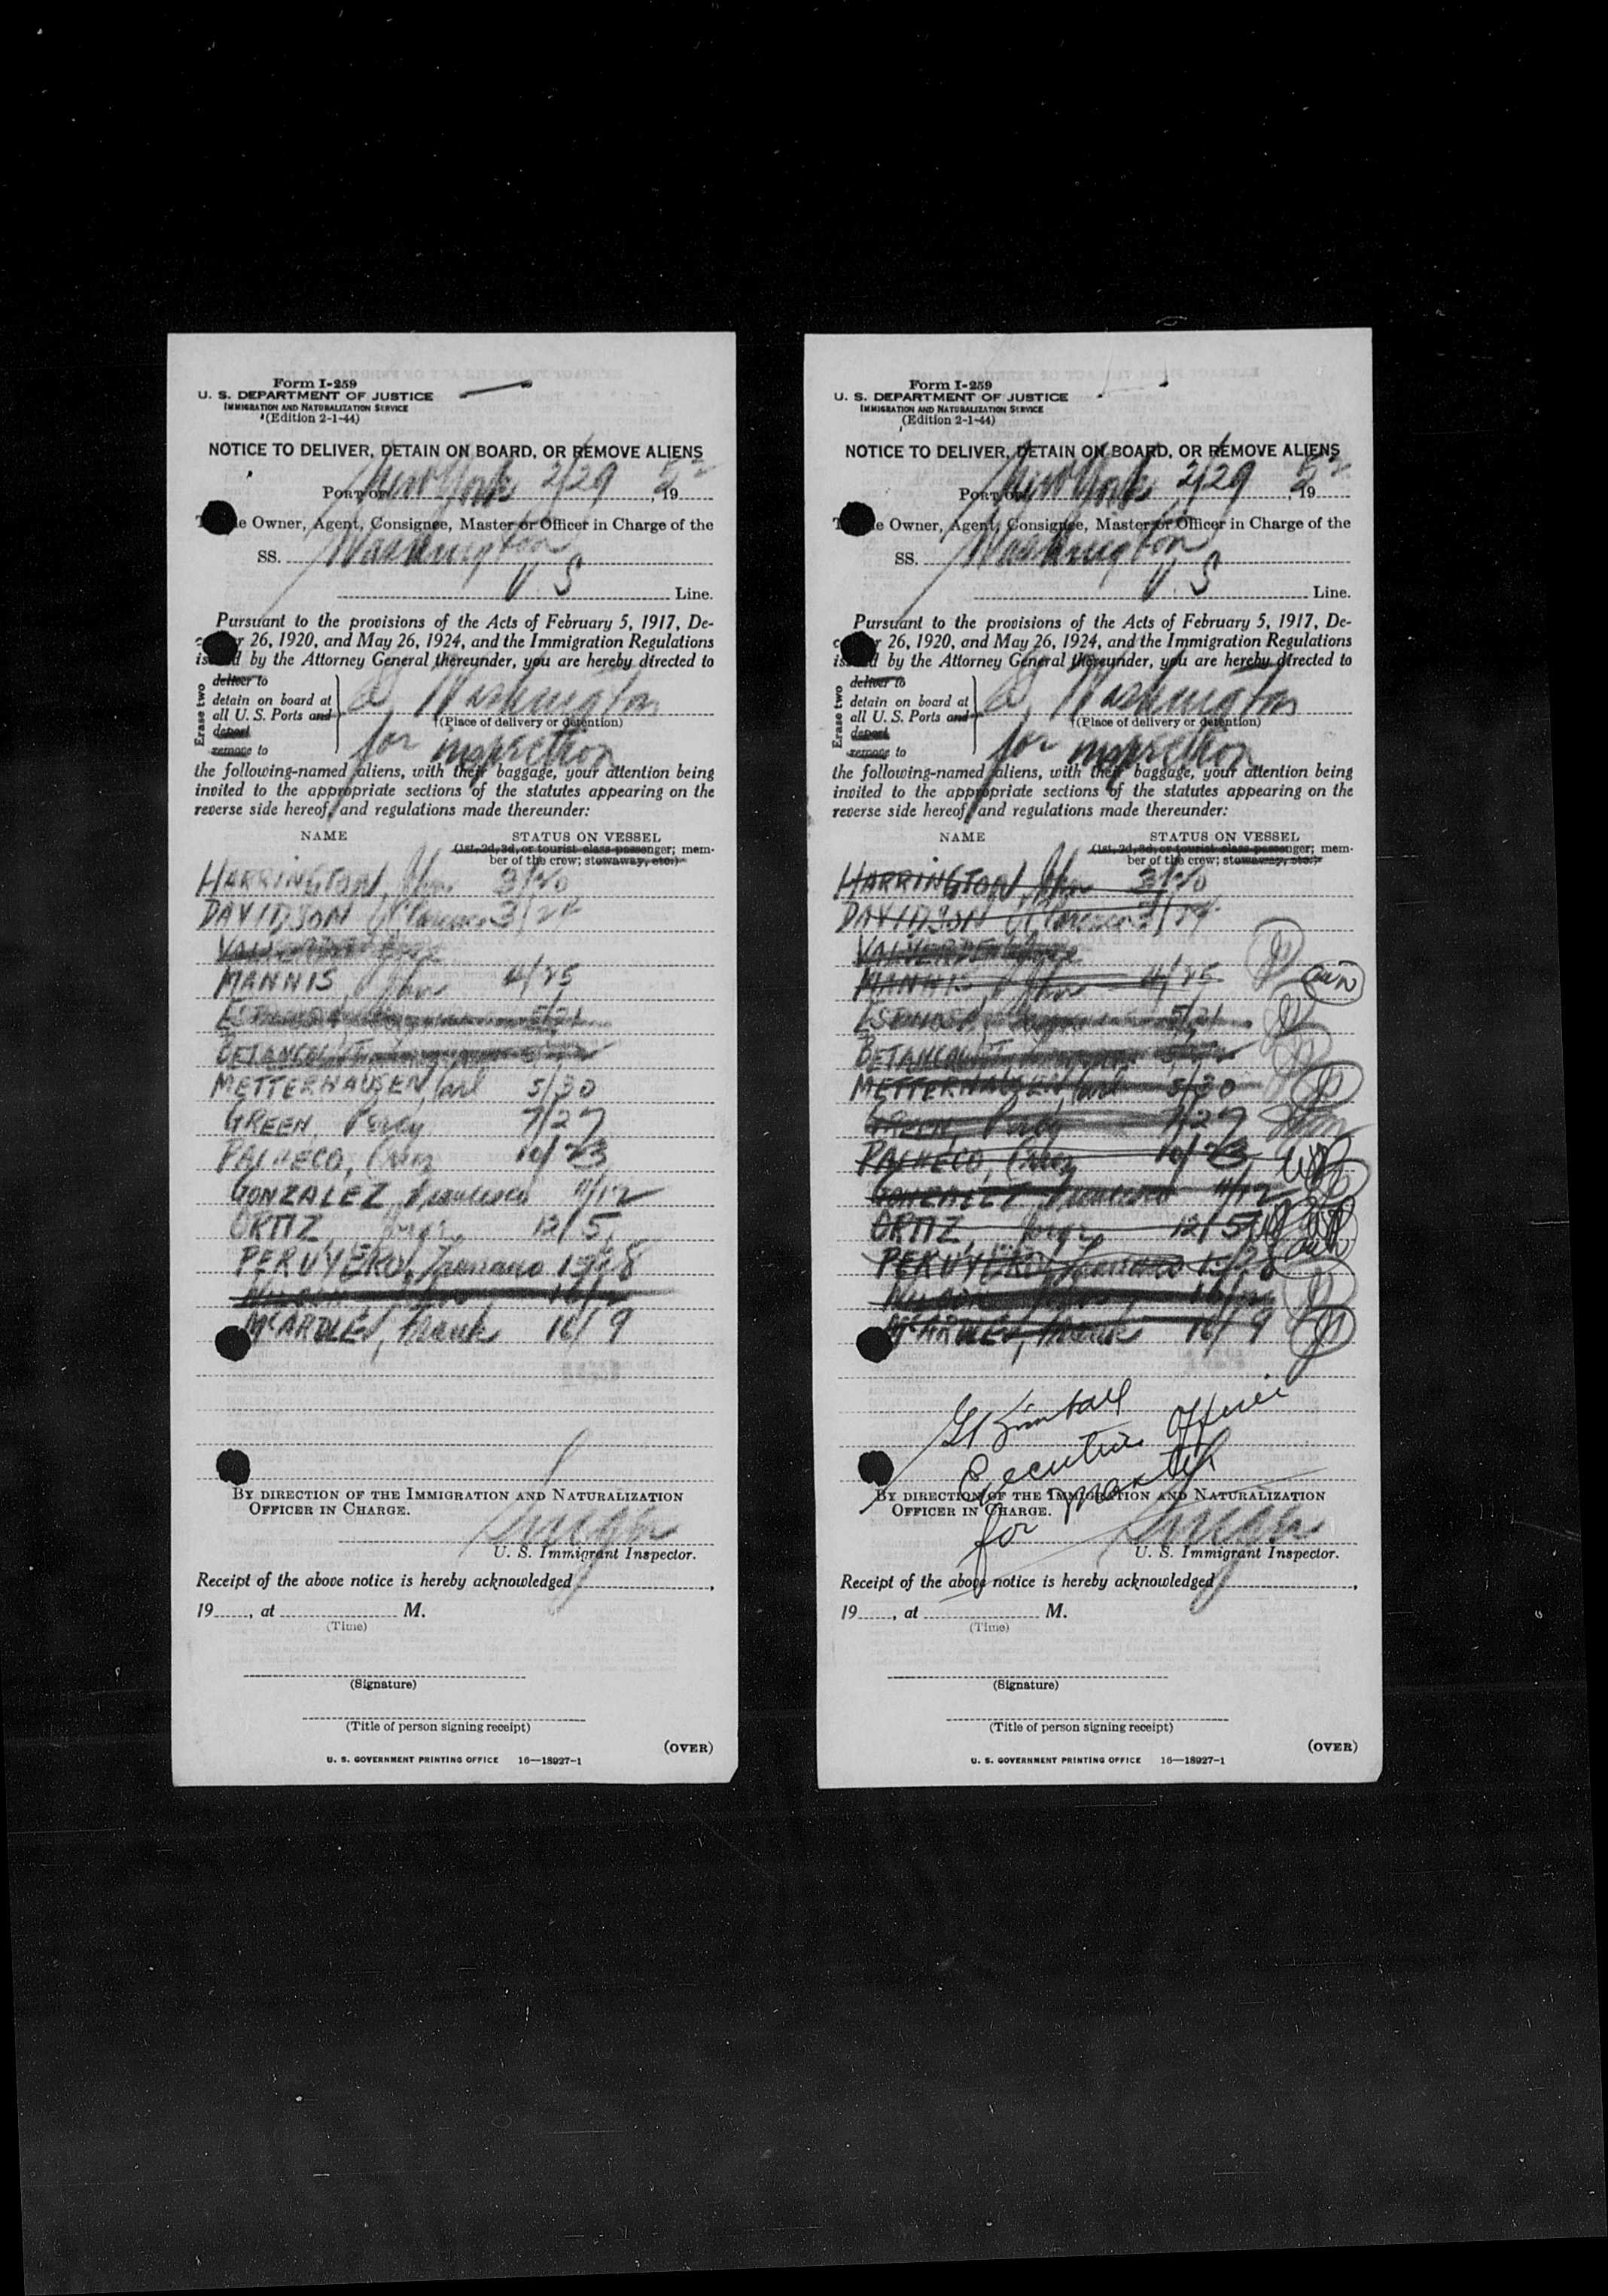 Form I-259
U. S. DEPARTMENT OF JUSTICE
IMMIGRATION AND NATURALIZATION SERVICE
(Edition 2-1-44)
NOTICE TO DELIVER, DETAIN ON BOARD, OR REMOVE ALIENS
PORT OF New York 2/29, 1952
e Owner, Agent, Consignee, Master or Officer in Charge of the
SS. Washington
U. S Line.
Pursuant to the provisions of the Acts of February 5, 1917, De-
r 26, 1920, and May 26, 1924, and the Immigration Regulations
is d by the Attorney General thereunder, you are hereby directed to
Erase two
deliver to
detain on board at
all U. S. Ports and
deport
remove to
Washington
(Place of delivery or detention)
for inspection
the following-named aliens, with their baggage, your attention being
invited to the appropriate sections of the statutes appearing on the
reverse side hereof, and regulations made thereunder:
NAME STATUS ON VESSEL
(1st, 2d, 3d, or tourist class passenger; mem-
ber of the crew; stowaway, etc.)
HARRINGTON, John 3/20
DAVIDSON Clarence 3/24
MANNIS John 4/25
5/21
BETANCOURT
METTERHAUSEN, Carl 5/30
GREEN, Percy 7/27
PACHECO, 10/23
GONZALEZ Francisco 11/12
ORTIZ, Jorge 12/5
PERUYERO,
MCARDLE, Frank 16/9
BY DIRECTION OF THE IMMIGRATION AND NATURALIZATION
OFFICER IN CHARGE.
U. S. Immigrant Inspector.
Receipt of the above notice is hereby acknowledged
19 , at M.
(Time)
(Signature)
(Title of person signing receipt)
(OVER)
U. S. GOVERNMENT PRINTING OFFICE 16—18927-1
Form I-259
U. S. DEPARTMENT OF JUSTICE
IMMIGRATION AND NATURALIZATION SERVICE
(Edition 2-1-44)
NOTICE TO DELIVER, DETAIN ON BOARD, OR REMOVE ALIENS
PORT OF New York 2/29, 1952
e Owner, Agent, Consignee, Master or Officer in Charge of the
SS. Washington
U. S Line.
Pursuant to the provisions of the Acts of February 5, 1917, De-
c r 26, 1920, and May 26, 1924, and the Immigration Regulations
is d by the Attorney General thereunder, you are hereby directed to
Erase two
deliver to
detain on board at
all U. S. Ports and
deport
remove to
Washington
(Place of delivery or detention)
for inspection
the following-named aliens, with their baggage, your attention being
invited to the appropriate sections of the statutes appearing on the
reverse side hereof, and regulations made thereunder:
NAME STATUS ON VESSEL
(1st, 2d, 3d, or tourist class passenger; mem-
ber of the crew; stowaway, etc.)
HARRINGTON, John 3/20
DAVIDSON Clarence 3/24
VALVERDE
MANNIS, John 4/25
5/21
BETANCOURT
METTERHAUSEN, Carl 5/30
GREEN, Percy 7/27
PACHECO, 10/23
GONZALEZ Francisco 11/12
ORTIZ, Jorge 12/5
PERUYERO,
MCARDLE, Frank 16/9
Kimball
Executive Officer
for Master
BY DIRECTION OF THE IMMIGRATION AND NATURALIZATION
OFFICER IN CHARGE.
U. S. Immigrant Inspector.
Receipt of the above notice is hereby acknowledged
19 , at M.
(Time)
(Signature)
(Title of person signing receipt)
(OVER)
U. S. GOVERNMENT PRINTING OFFICE 16—18927-1